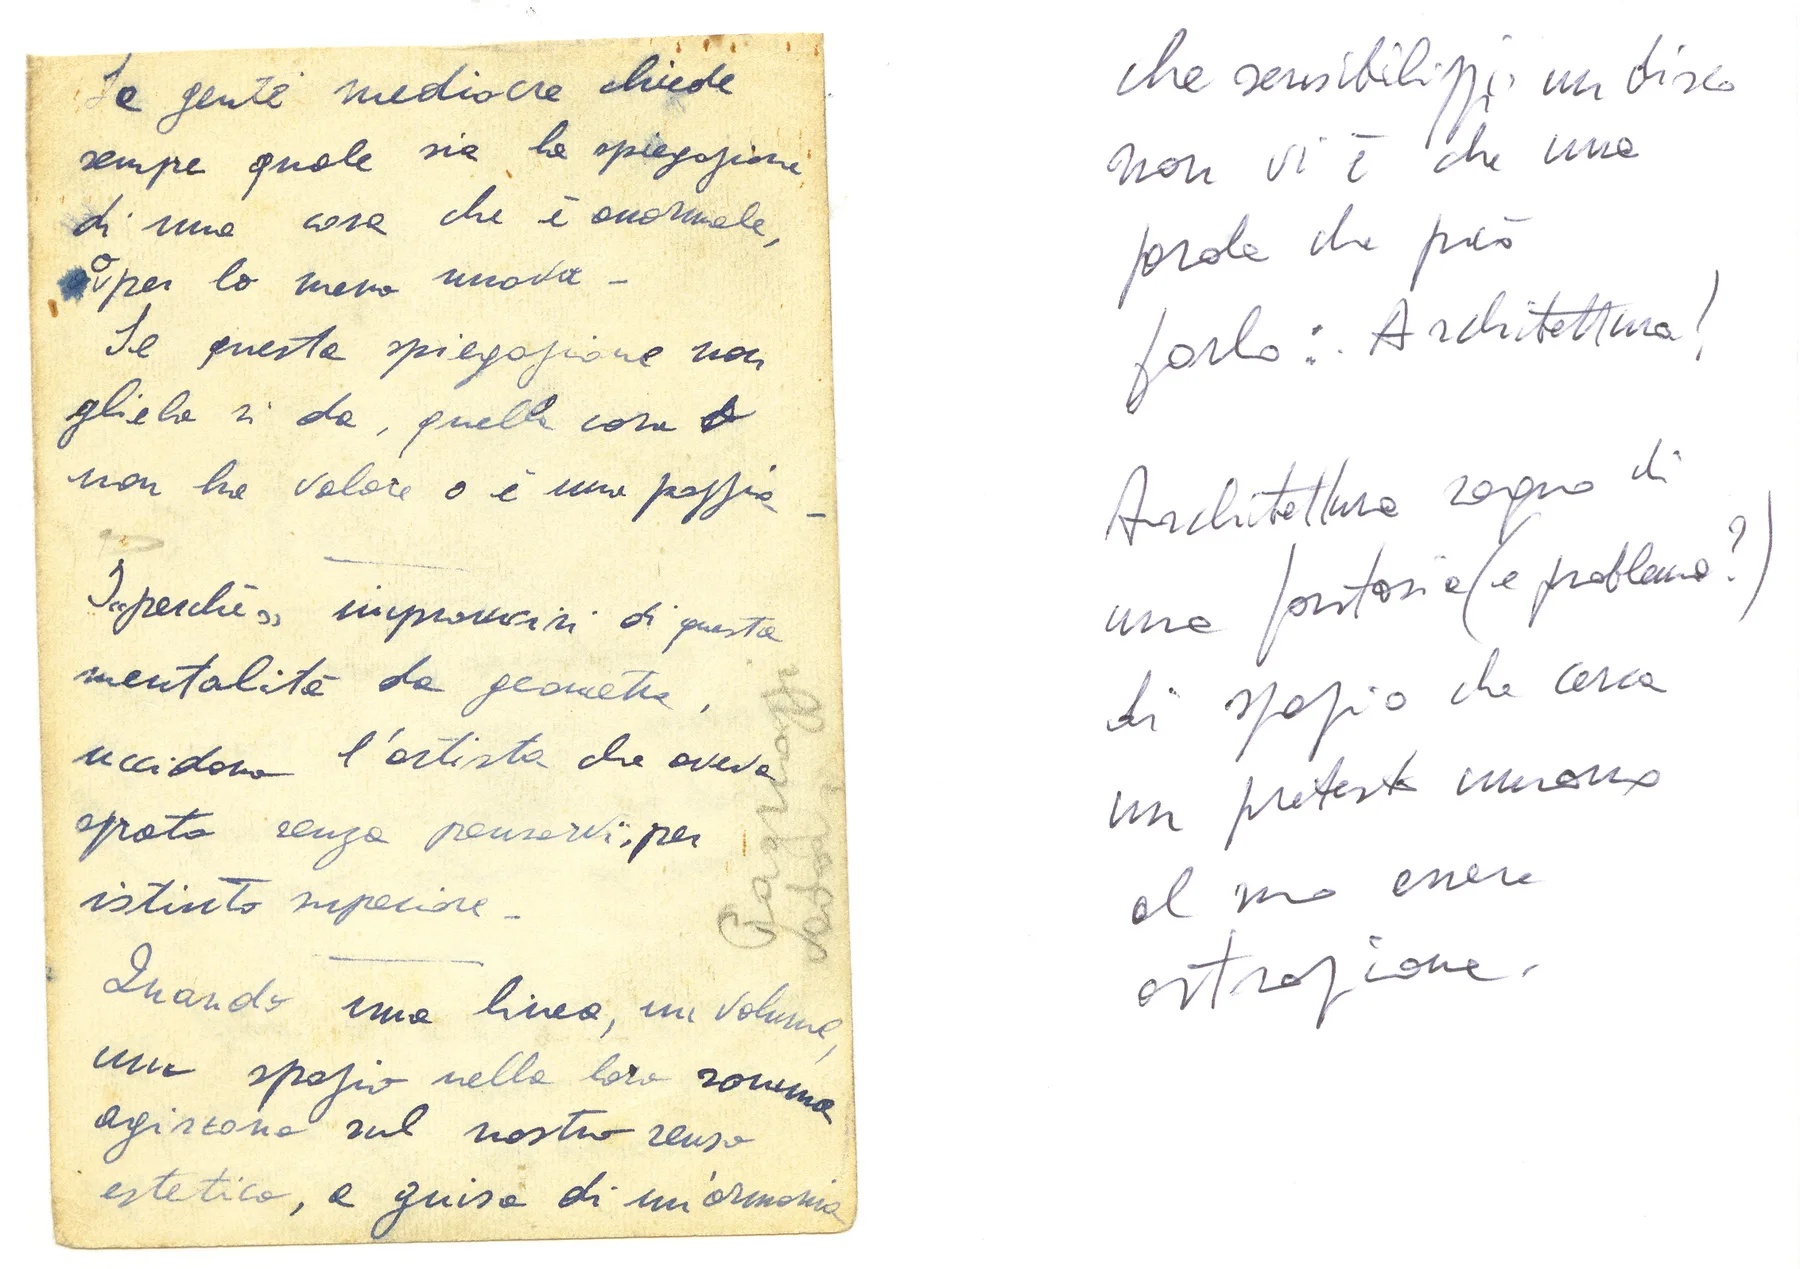 La gente mediocre chiede
sempre quale sia la spiegazione
di una cosa che è anormale,
o per lo meno nuova -
Se questa spiegazione non
gliela si da, quella cosa
non ha valore o è una pazzia -
I "perchè" improvvisi di questa
mentalità da geometra,
uccidono l'artista che aveva
osato senza pensarvi, per
istinto superiore -
Quando una linea, un volume,
uno spazio nella loro somma
agiscono sul nostro senso
estetico, a guisa di un'armonia
che sensibilizzi un disco
non vi è che una
parola che può
farlo: Architettura!
Architettura sogno di
una fantasia (e problema?)
di spazio che cerca
un pretesto umano
al suo essere
astrazione.